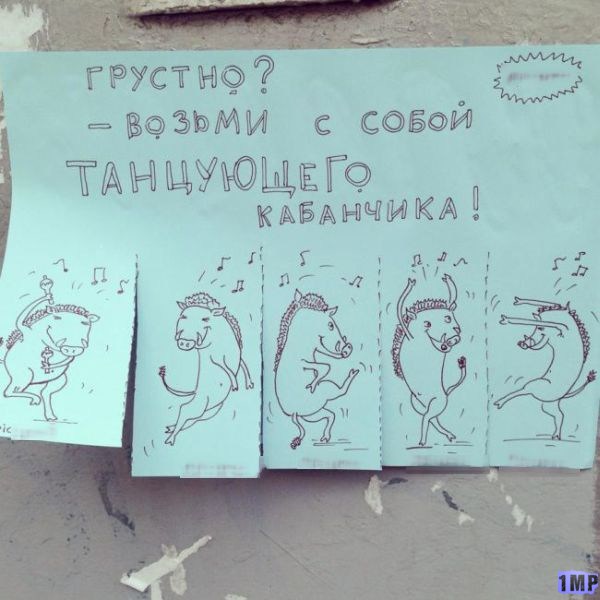 ГРУСТНО?
– ВОЗЬМИ С СОБОЙ
ТАНЦУЮЩЕГО
КАБАНЧИКА!
ic
1MP